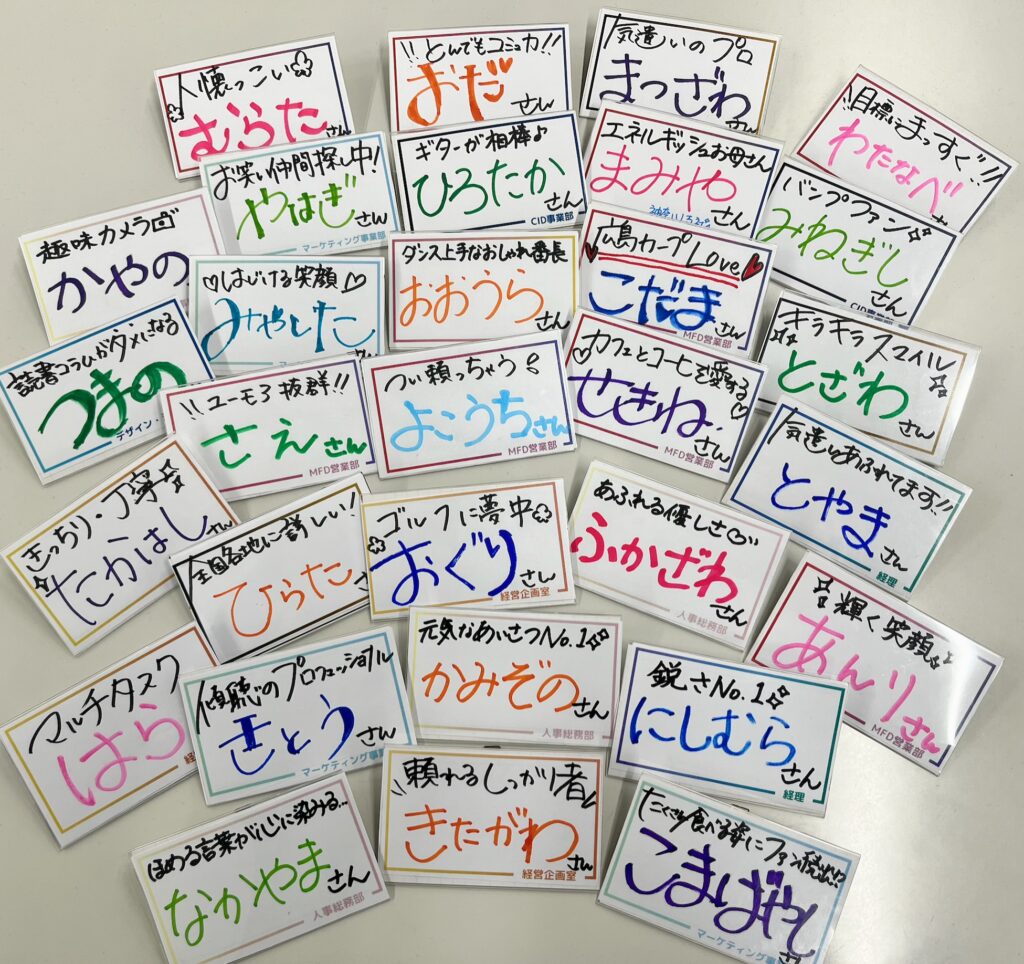 人懐っこい
むらた
さん
!!とんでもコミュカ!!
おだ
さん
気遣いのプロ
まつざわ
さん
目標にまっすぐ!!
わたなべ
お笑い仲間探し中!
やはぎ
さん
マーケティング事業部
ギターが相棒♪
ひろたか
さん
CID事業部
エネルギッシュお母さん
まみや
さん
バンプファン
みねぎし
さん
CID事業部
趣味カメラ
かやの
はじける笑顔
みやした
さん
ダンス上手なおしゃれ番長
おおうら
さん
広島カープLove
こだま
さん
MFD営業部
キラキラスマイル
とざわ
さん
読書コラムがタメになる
つまの
デザイン・
ユーモア抜群!!
さえさん
MFD営業部
つい頼っちゃう
よこうちさん
MFD営業部
カフェとコーヒーを愛する
せきね
さん
MFD営業部
気遣いあふれてます!!
とやま
さん
経理
きっちり・丁寧
たかはし
さん
全国各地に詳しい!
ひらた
さん
ゴルフに夢中
おぐり
さん
経営企画室
あふれる優しさ
ふかざわ
さん
人事総務部
輝く笑顔
あんり
さん
MFD営業部
マルチタスク
はら
傾聴のプロフェッショナル
きとう
さん
マーケティング事業
元気なあいさつNo.1
かみぞの
さん
人事総務部
鋭さNo.1
にしむら
さん
経理
ほめる言葉が心に染みる...
なかやま
さん
人事総務部
頼れるしっかり者
きたがわ
さん
経営企画室
たくさん食べる姿にファン続出!?
こまばやし
さん
マーケティング事業